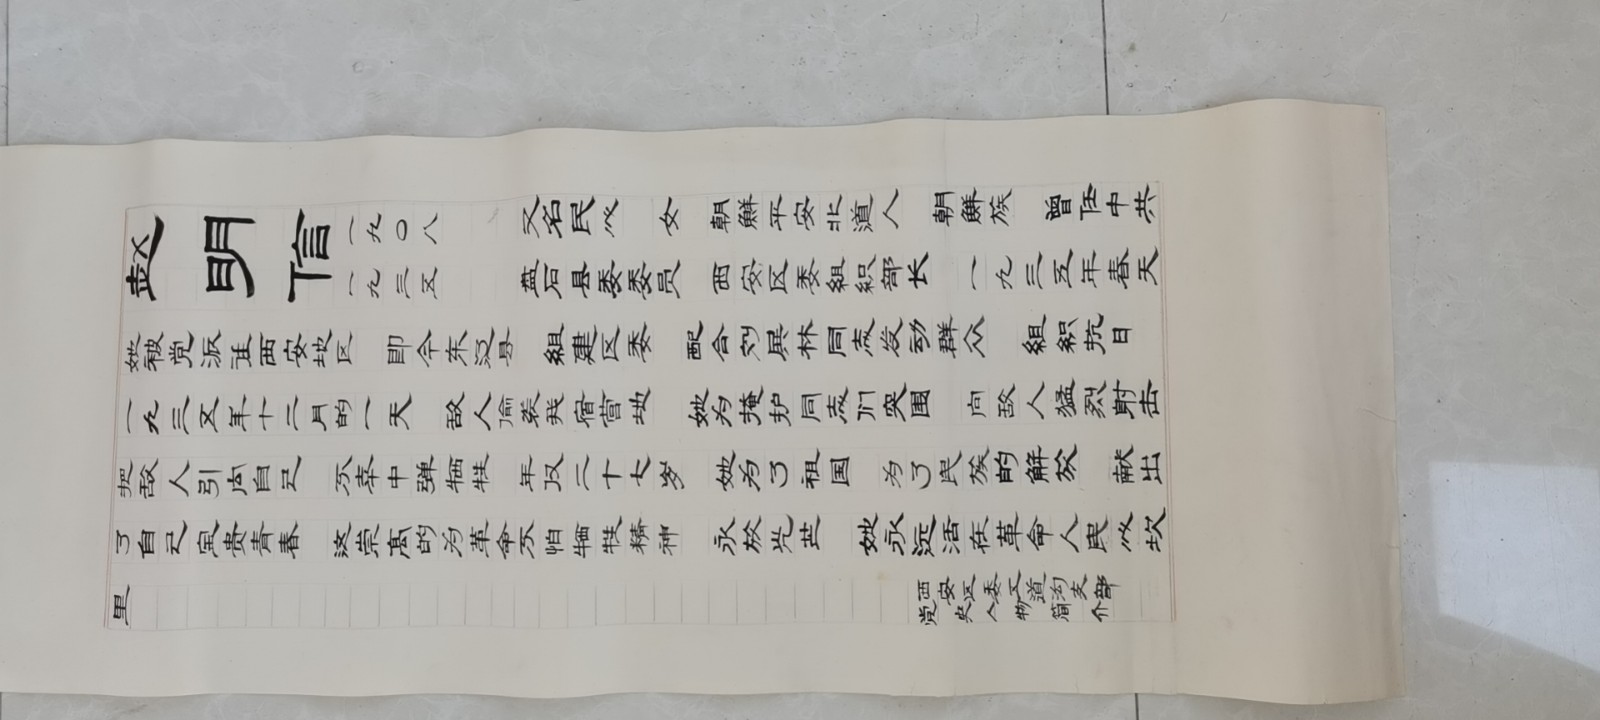 赵明信 一九〇八 又名民心 女 朝鮮平安北道人 朝鮮族 曾任中共
一九三五 盘石县委委员 西安区委组织部长 一九三五年春天
她被党派往西安地区 即今东辽县 组建区委 配合刘展林同志发动群众 组织抗日
一九三五年十二月的一天 敌人偷袭我宿营地 她为掩护同志们突围 向敌人猛烈射击
把敌人引向自己 不幸中弹牺牲 年仅二十七岁 她为了祖国 为了民族的解放 献出
了自己宝贵青春 这崇高的为革命不怕牺牲精神 永放光芒 她永远活在革命人民心坎
里
西安区委工道沟支部
党史人物简介